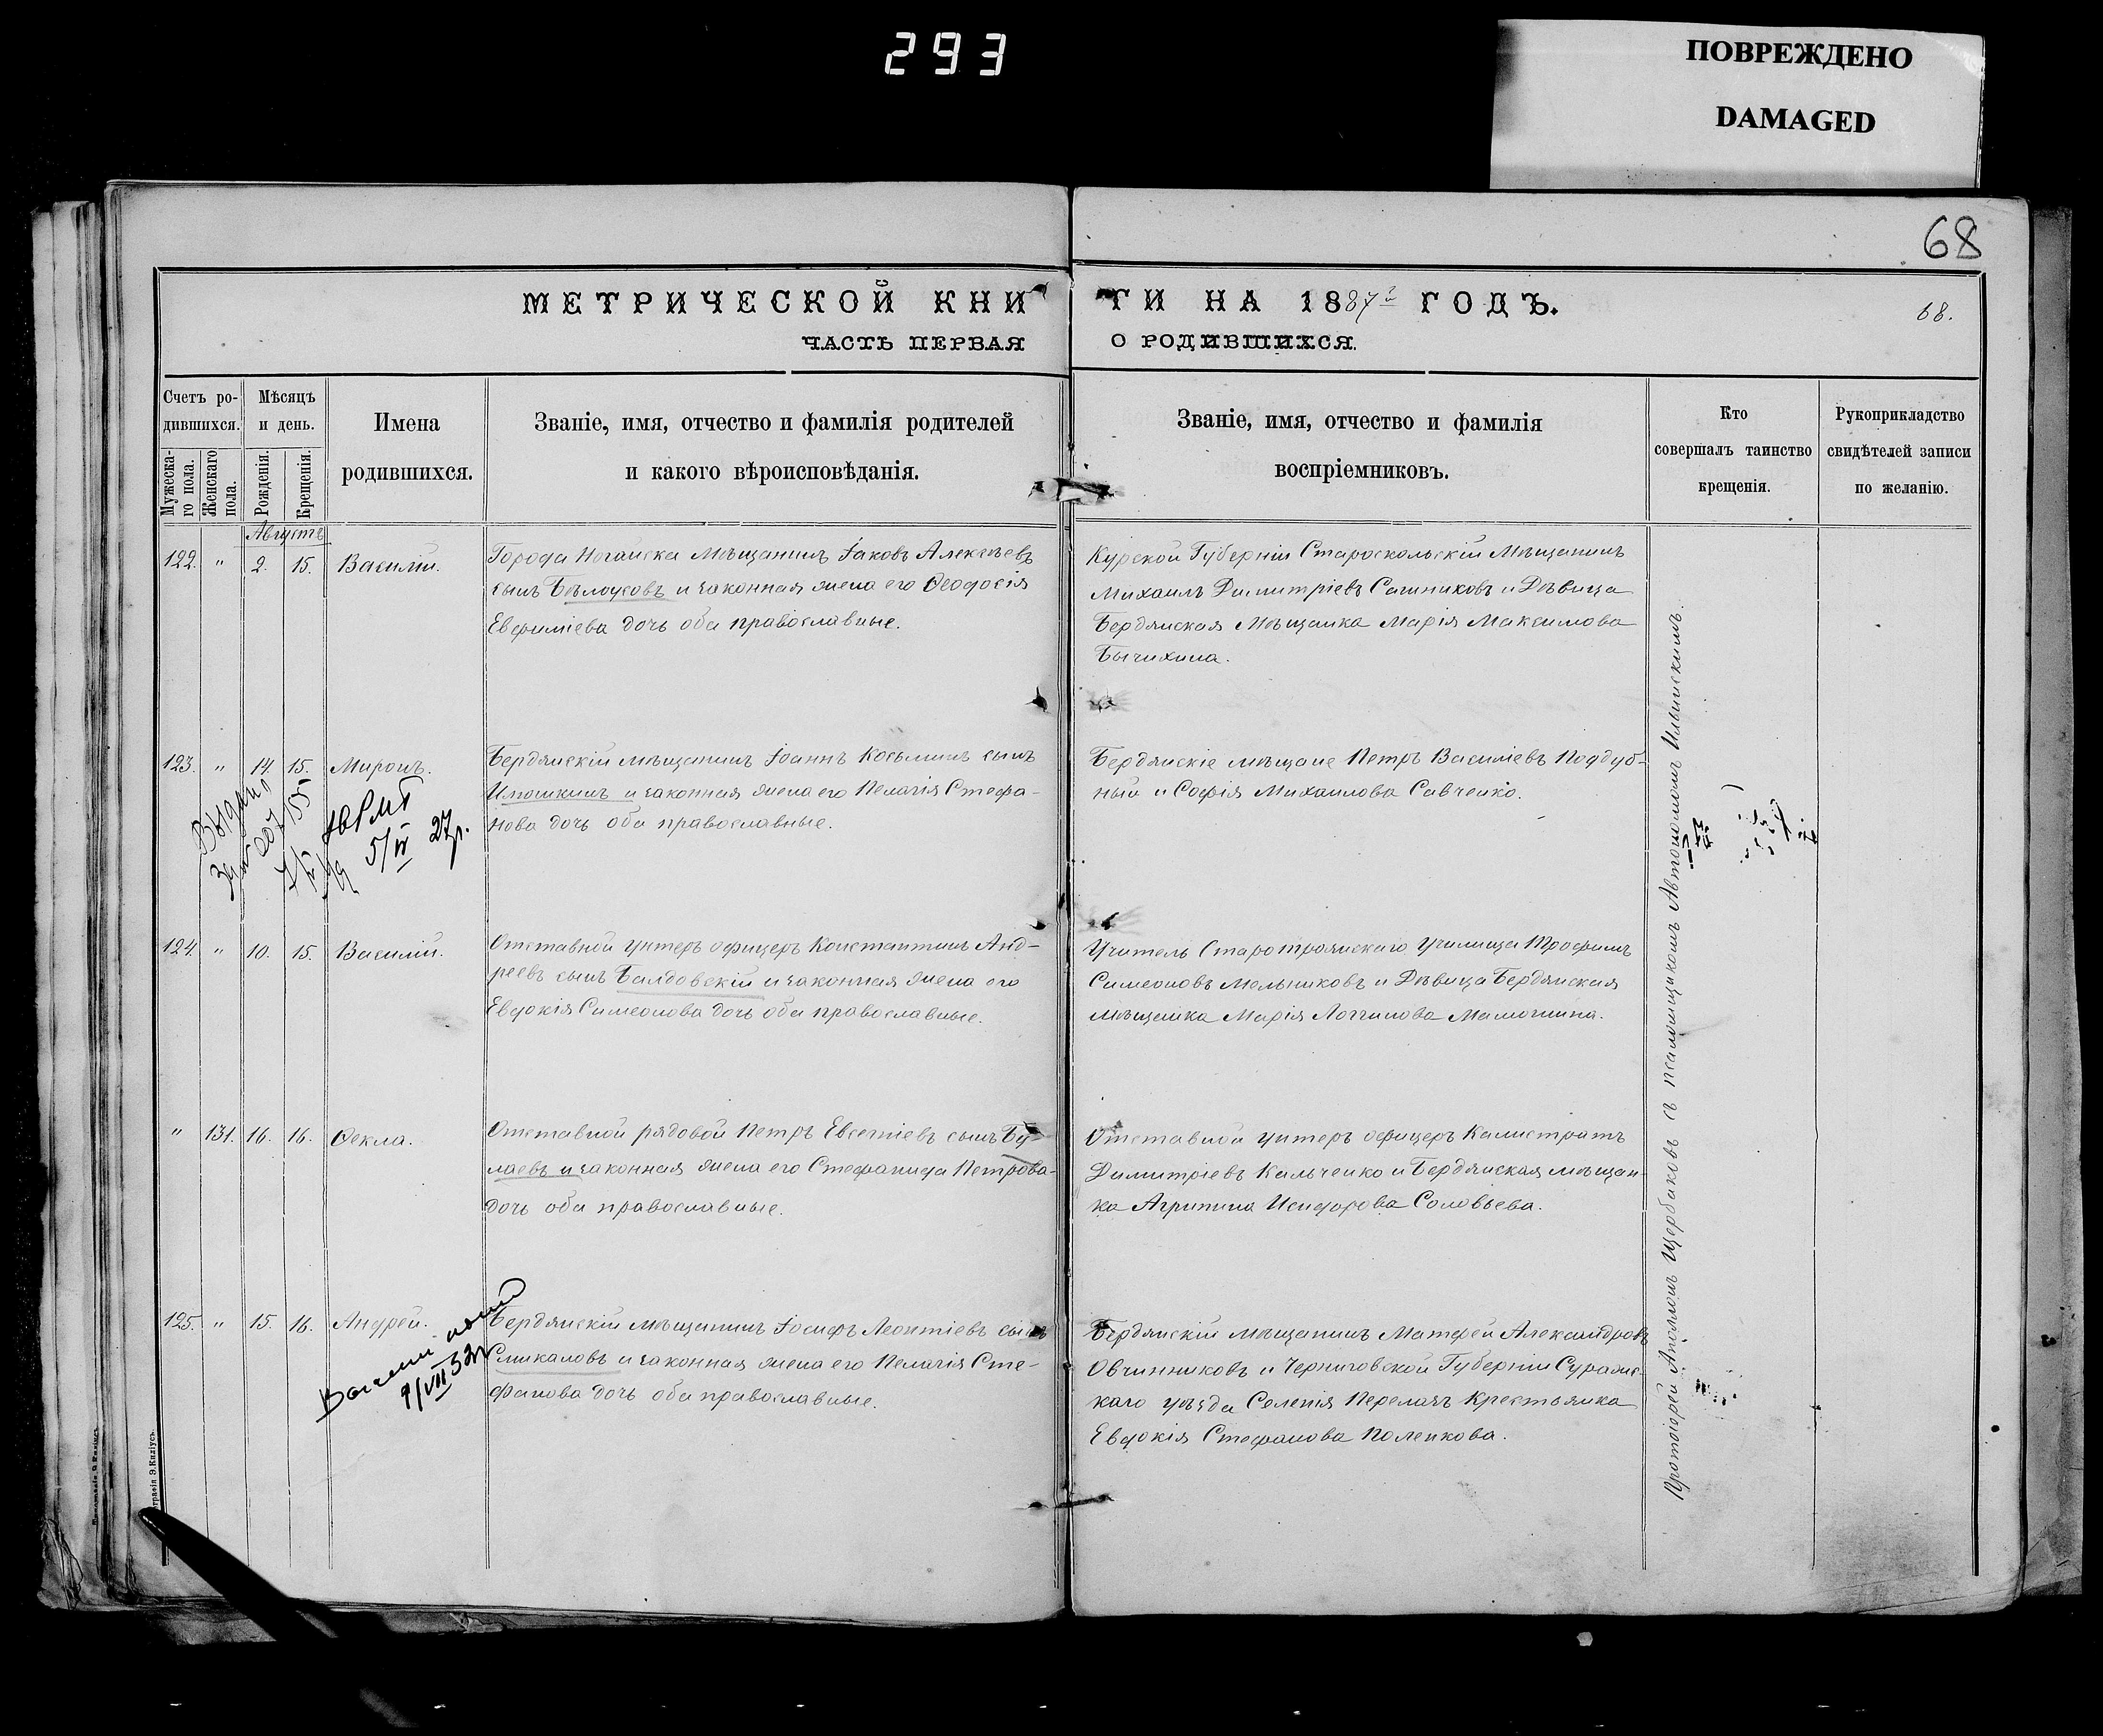 293
ПОВРЕЖДЕНО
DAMAGED
68
МЕТРИЧЕСКОЙ КНИГИ НА 1887й ГОДЪ.
68.
ЧАСТЬ ПЕРВАЯ О РОДИВШИХСЯ.
Счетъ ро-
дившихся.
Мужеска-
го пола.
Женскаго
пола.
Мѣсяцъ
и день.
Рожденія.
Крещенія.
Имена
родившихся.
Званіе, имя, отчество и фамилія родителей
и какого вѣроисповѣданія.
Званіе, имя, отчество и фамилія
воспріемниковъ.
Кто
совершалъ таинство
крещенія.
Рукоприкладство
свидѣтелей записи
по желанію.
Августъ
122. " 2. 15. Василій.
Города Ногайска Мѣщанинъ Іаковъ Алексѣевъ
сынъ Бѣлоусовъ и законная жена его Ѳеодосія
Евфиміева дочь оба православные.
Курской Губерніи Староскольскій Мѣщанинъ
Михаилъ Димитріевъ Сошниковъ и Дѣвица
Бердянская Мѣщанка Марія Максимова
Бычихина.
123. " 14. 15. Миронъ.
Бердянскій мѣщанинъ Іоаннъ Косьминъ сынъ
Илюшкинъ и законная жена его Пелагія Стефа-
нова дочь оба православные.
Бердянскіе мѣщане Петръ Василіевъ Поддуб-
ный и Софія Михаилова Савченко.
5/IV 27р.
124. " 10. 15. Василій.
Отставной унтеръ офицеръ Константинъ Анд-
реевъ сынъ Балдовскій и законная жена его
Евдокія Симеонова дочь оба православные.
Учитель Старотроянскаго училища Трофимъ
Симеоновъ Мельниковъ и Дѣвица Бердянская
мѣщанка Марія Логгинова Мамошина.
" 131. 16. 16. Ѳекла.
Отставной рядовой Петръ Евсегніевъ сынъ Бу-
лаевъ и законная жена его Стефанида Петрова
дочь оба православные.
Отставной унтеръ офицеръ Калистратъ
Димитріевъ Кальченко и Бердянская мѣщан-
ка Агрипина Исидорова Соловьева.
125. " 15. 16. Андрей.
9/VII 32
Бердянскій мѣщанинъ Іосифъ Леонтіевъ сынъ
Смикаловъ и законная жена его Пелагія Сте-
фанова дочь оба православные.
Бердянскій мѣщанинъ Матфей Александровъ
Овчинниковъ и Черниговской Губерніи Сураж-
каго уѣзда Селенія Перелазъ Крестьянка
Евдокія Стефанова Поленкова.
Протоіерей Аполлонъ Щербаковъ съ псаломщикомъ Автономомъ Ильинскимъ.